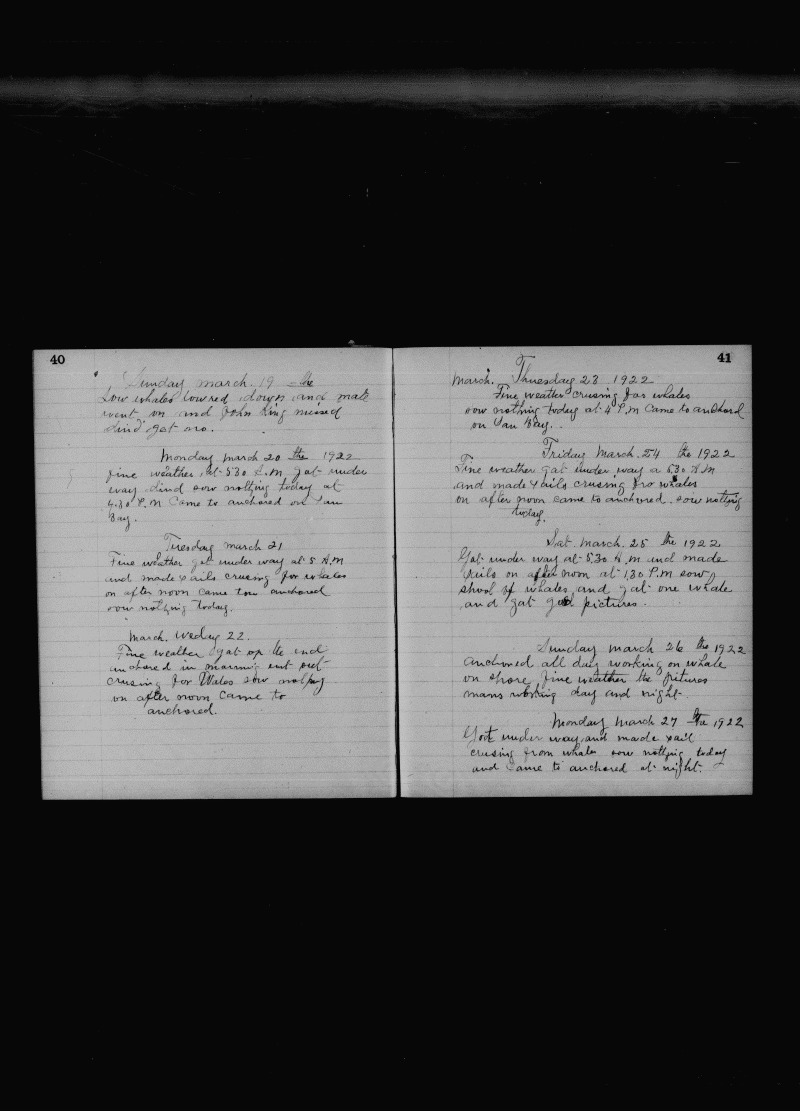 40
Sunday march. 19 the
Sow whales lowred down and mate
went on and John King missed
dind get aro.
Monday march 20 the 1922
fine weather at 5.30 A.M. gat under
way dind sow nothing today at
4.30 P.M Came to anchored on San
Bay.
Tuesday march 21
Fine weather get under way at 5 A.M
and made sails crusing for whales
on after noon came tow anchored
sow nothing today.
March. Wedday 22.
Fine weather gat op the
anchored in morning out
crusing for Wales sow nothing
on after noon came to
anchored.
41
March. Thuesday 23 1922
Fine weather crusing for whales
sow nothing today at 4 P.M Came to anchord
on San Bay.
Friday March. 24 the 1922
Fine weather gat under way a 5.30 A M
and made sails crusing fro whales
on after noon came to anchored. sow nothing
today.
Sat. March. 25 the 1922
Gat under way at 5,30 A.M and made
sails on after noon at 1,30 P.M sow
shool of whales and gat one whale
and gat god pictures.
Sunday march 26 the 1922
anchored all day working on whale
on shore, fine weather the pitures
mans working day and night.
Monday March 27 the 1922
Gott under way and made sail
crusing from whales sow nothing today
and came to anchored at night.